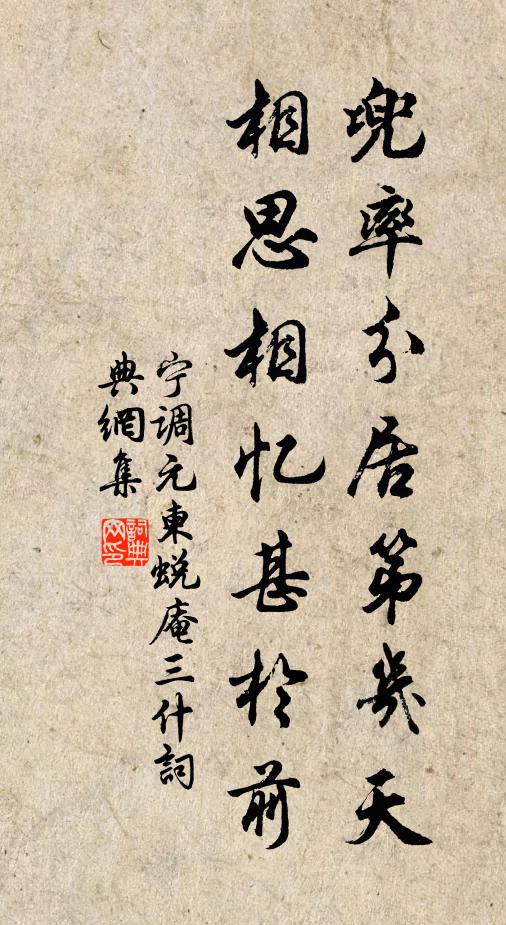 兜率分居第几天
相思相忆甚於前
宁调元東蜕庵三什詞
典網集
詞典
网印